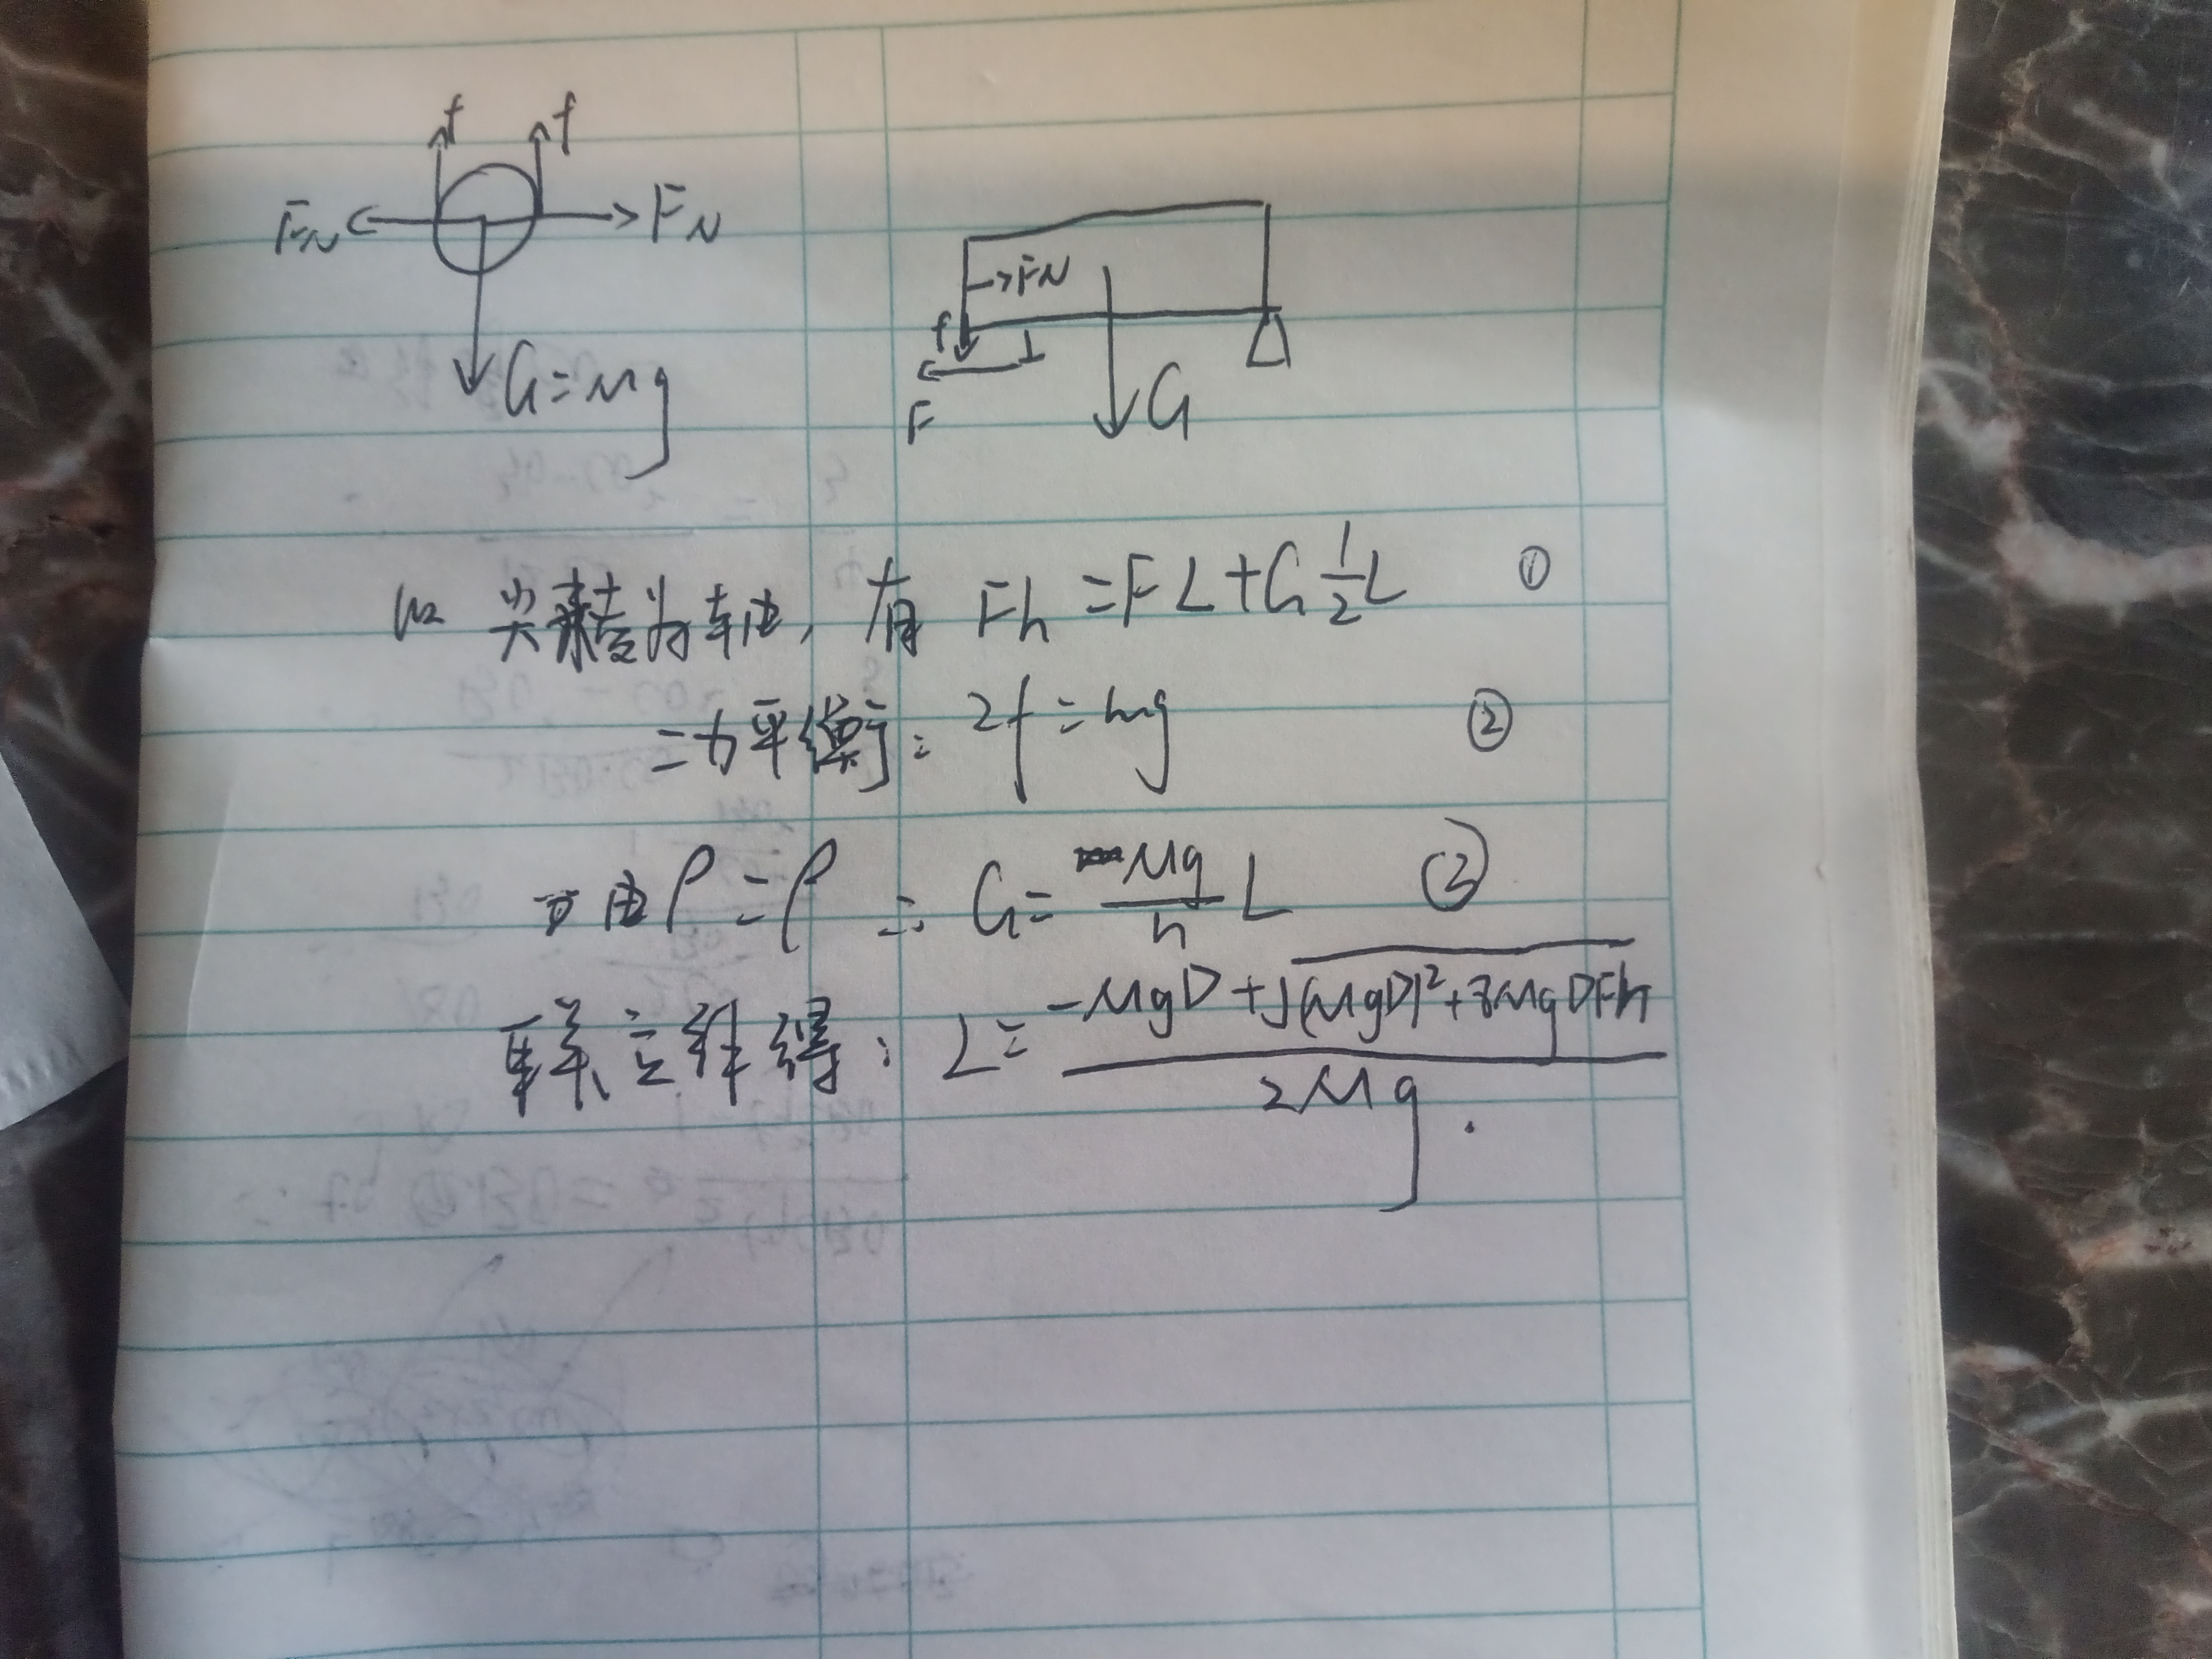 f f
F_N F_N
G=Mg
F_N
f
F
G
以尖劈为轴, 有 Fh = FL + G\frac{1}{2}L ①
二力平衡: 2f = mg ②
由 ρ = ρ ∴ G = \frac{Mg}{h} L ③
联立解得: L = \frac{-MgD + \sqrt{(MgD)^2 + 8MgDFh}}{2Mg}.